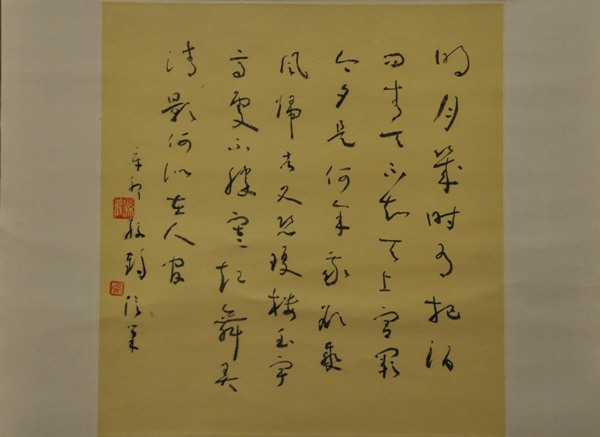 明月幾時有把酒
問青天不知天上宮闕
今夕是何年我欲乘
風歸去又恐瓊樓玉宇
高處不勝寒起舞弄
清影何似在人間
辛卯